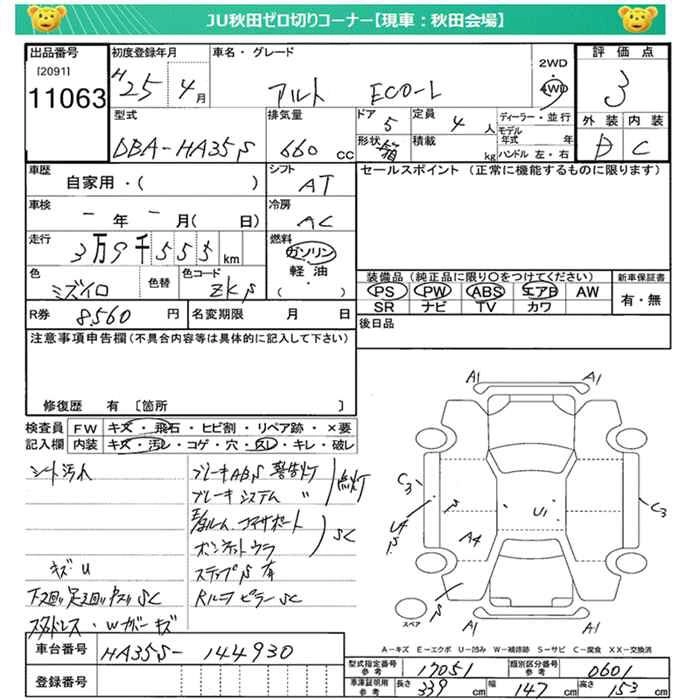 JU秋田ゼロ切りコーナー【現車：秋田会場】
出品番号 初度登録年月 車名・グレード 2WD 評価点
[2091]
11063 H25年4月 アルト ECO-L 4WD 3
型式 排気量 ドア 定員 ディーラー・並行 外装 内装
DBA-HA35S 660 CC 5 4人 モデル年式 年 D C
形状 箱 積載 kg ハンドル 左・右
車歴 シフト セールスポイント (正常に機能するものに限ります)
自家用・( ) AT
車検 冷房
－年－月( 日) AC
走行 燃料
3万9千555km ガソリン
軽油
( )
色 色替 色コード 装備品 (純正品に限り〇をつけてください) 新車保証書
ミズイロ ZKS PS PW ABS エアB AW 有・無
SR ナビ TV カワ
R券 8560円 名変期限 月 日 後日品
注意事項申告欄(不具合内容等は具体的に記入して下さい)
修復歴 有 〔箇所 〕
検査員 FW キズ・飛石・ヒビ割・リペア跡・×要
記入欄 内装 キズ・汚レ・コゲ・穴・スレ・キレ・破レ
シート汚れ ブレーキABS 警告灯 点灯
ブレーキシステム 〃
コアサポート SC
ボンネットウラ
キズU ステップS有
下廻り足廻り SC Rルーフピラー SC
スタッドレス・Wカバーキズ
A1 A1
C3 C3
U1
A4
S
S
A1 A1
スペア
A－キズ E－エクボ U－凹み W－補修跡 S－サビ C－腐食 XX－交換済
車台番号 HA35S-144930
登録番号
型式指定番号 参考 17051 類別区分番号 参考 0601
車庫証明用 参考 長さ 339cm 幅 147cm 高さ 153cm